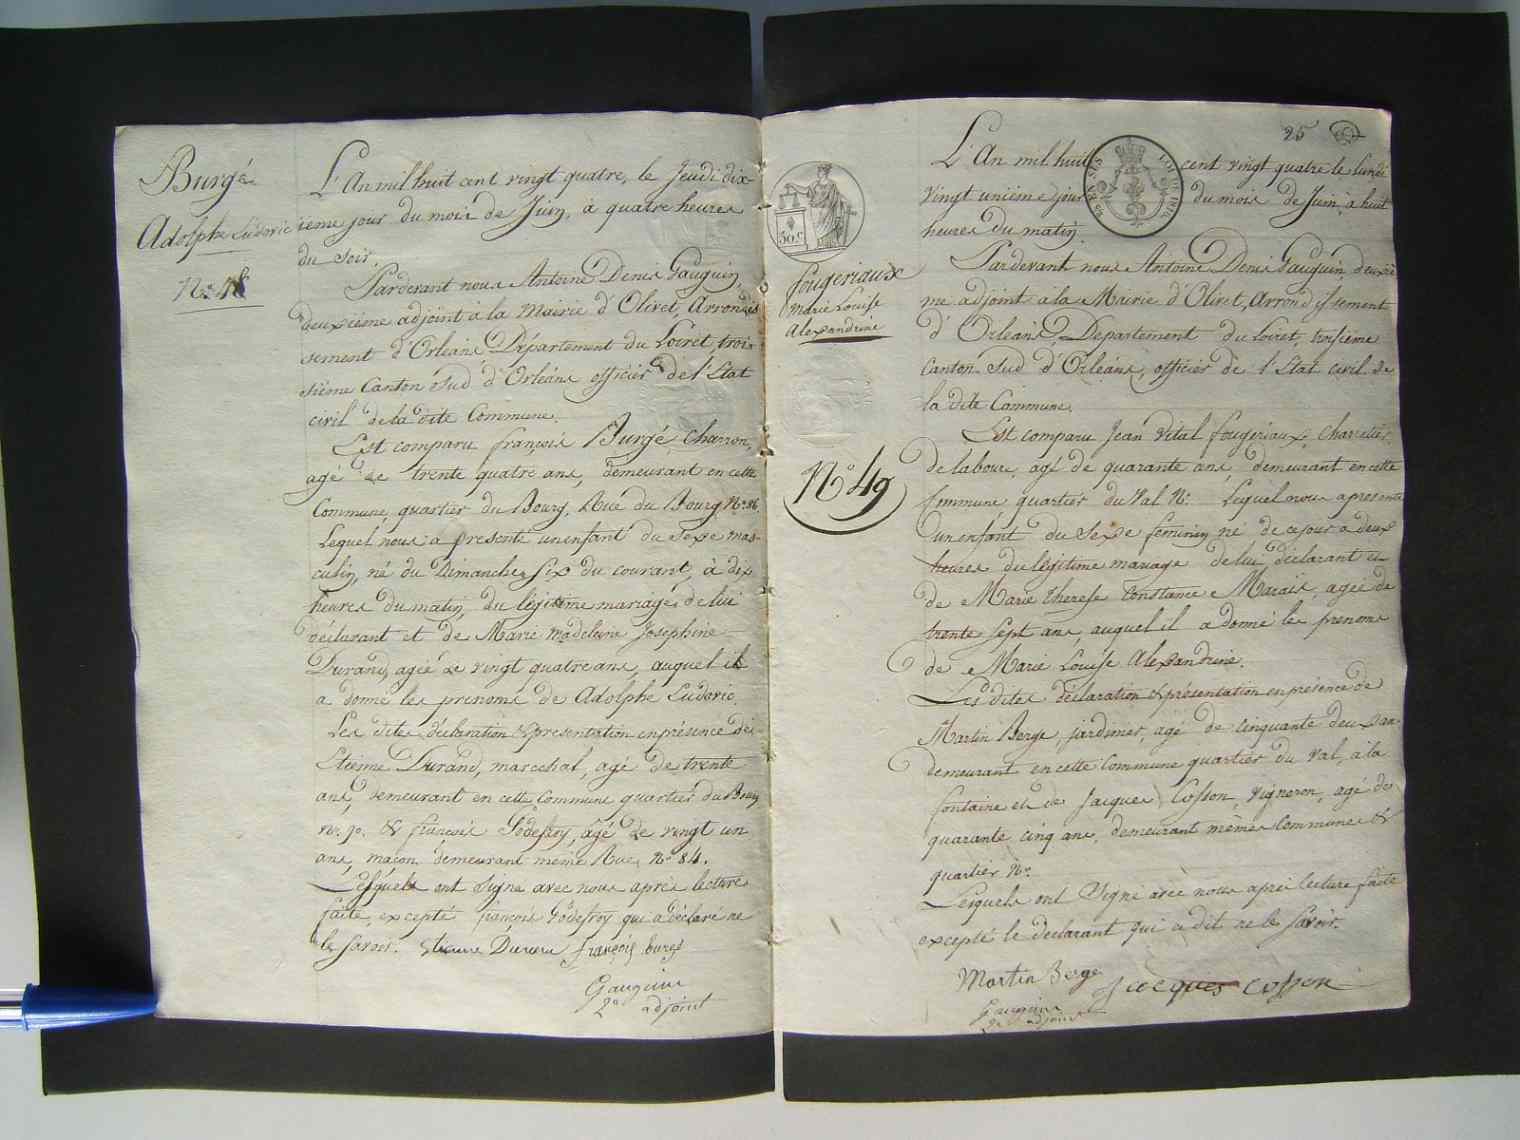 Burgé
Adolphe Ludovic
No. 48
L'An mil huit cent vingt quatre, le Jeudi dix-
ieme jour du mois de Juin, à quatre heures
du soir.
Pardevant nous Antoine Denis Gauguin,
deuxième adjoint à la Mairie d'Olivet, Arrondis
sement d'Orléans, Département du Loiret, troi-
sième Canton sud d'Orléans officier de l'Etat
civil de la dite Commune.
Est comparu françois Burgé, charron,
agé de trente quatre ans, demeurant en cette
Commune, quartier du Bourg, Rue du Bourg No. 86
Lequel nous a presenté un enfant du Sexe mas-
culin, né du Dimanche Six du courant, à dix
heures du matin, du légitime mariage de lui
déclarant et de Marie Madeleine Josephine
Durand, agée de vingt quatre ans, auquel il
a donné les prenoms de Adolphe Ludovic.
Les dites déclaration & presentation en présence de
Etienne Durand, marechal, agé de trente
ans, demeurant en cette Commune quartier du Bourg
no. 90. & françois Godefroy, agé de vingt un
ans, maçon, demeurant même Rue, No. 84.
Lesquels ont signé avec nous après lecture
faite, excepté françois Godefroy qui a déclaré ne
le savoir. Etienne Durand françois burgé
Gauguin
2e adjoint
25
50 c
Fougeriaux
Marie Louise
Alexandrine
No 49
L'An mil huit cent vingt quatre le lundi
vingt unième jour du mois de Juin, à huit
heures du matin.
Pardevant nous Antoine Denis Gauguin deuxiè
me adjoint à la Mairie d'Olivet, Arrondissement
d'Orléans, Departement du Loiret, troisieme
Canton Sud d'Orléans, officier de l'Etat civil de
la dite Commune.
Est comparu Jean Vital fougeriaux, Charretier
de laboure, agé de quarante ans, demeurant en cette
Commune quartier du Val No. Lequel nous a presenté
un enfant du Sexe feminin né de ce jour à deux
heures du légitime mariage de lui déclarant et
de Marie Therese Constance Marais, agée de
trente sept ans, auquel il a donné les prenoms
de Marie Louise Alexandrine.
Les dites déclaration & présentation en présence de
Martin Berge, jardinier, agé de cinquante deux ans
demeurant en cette Commune quartier du Val, à la
fontaine et de Jacques Cosson, vigneron, agé de
quarante cinq ans, demeurant même Commune &
quartier No.
Lesquels ont Signé avec nous après lecture faite
excepté le déclarant qui a dit ne le Savoir.
Martin Berge Jacques Cosson
Gauguin
2e adjoint